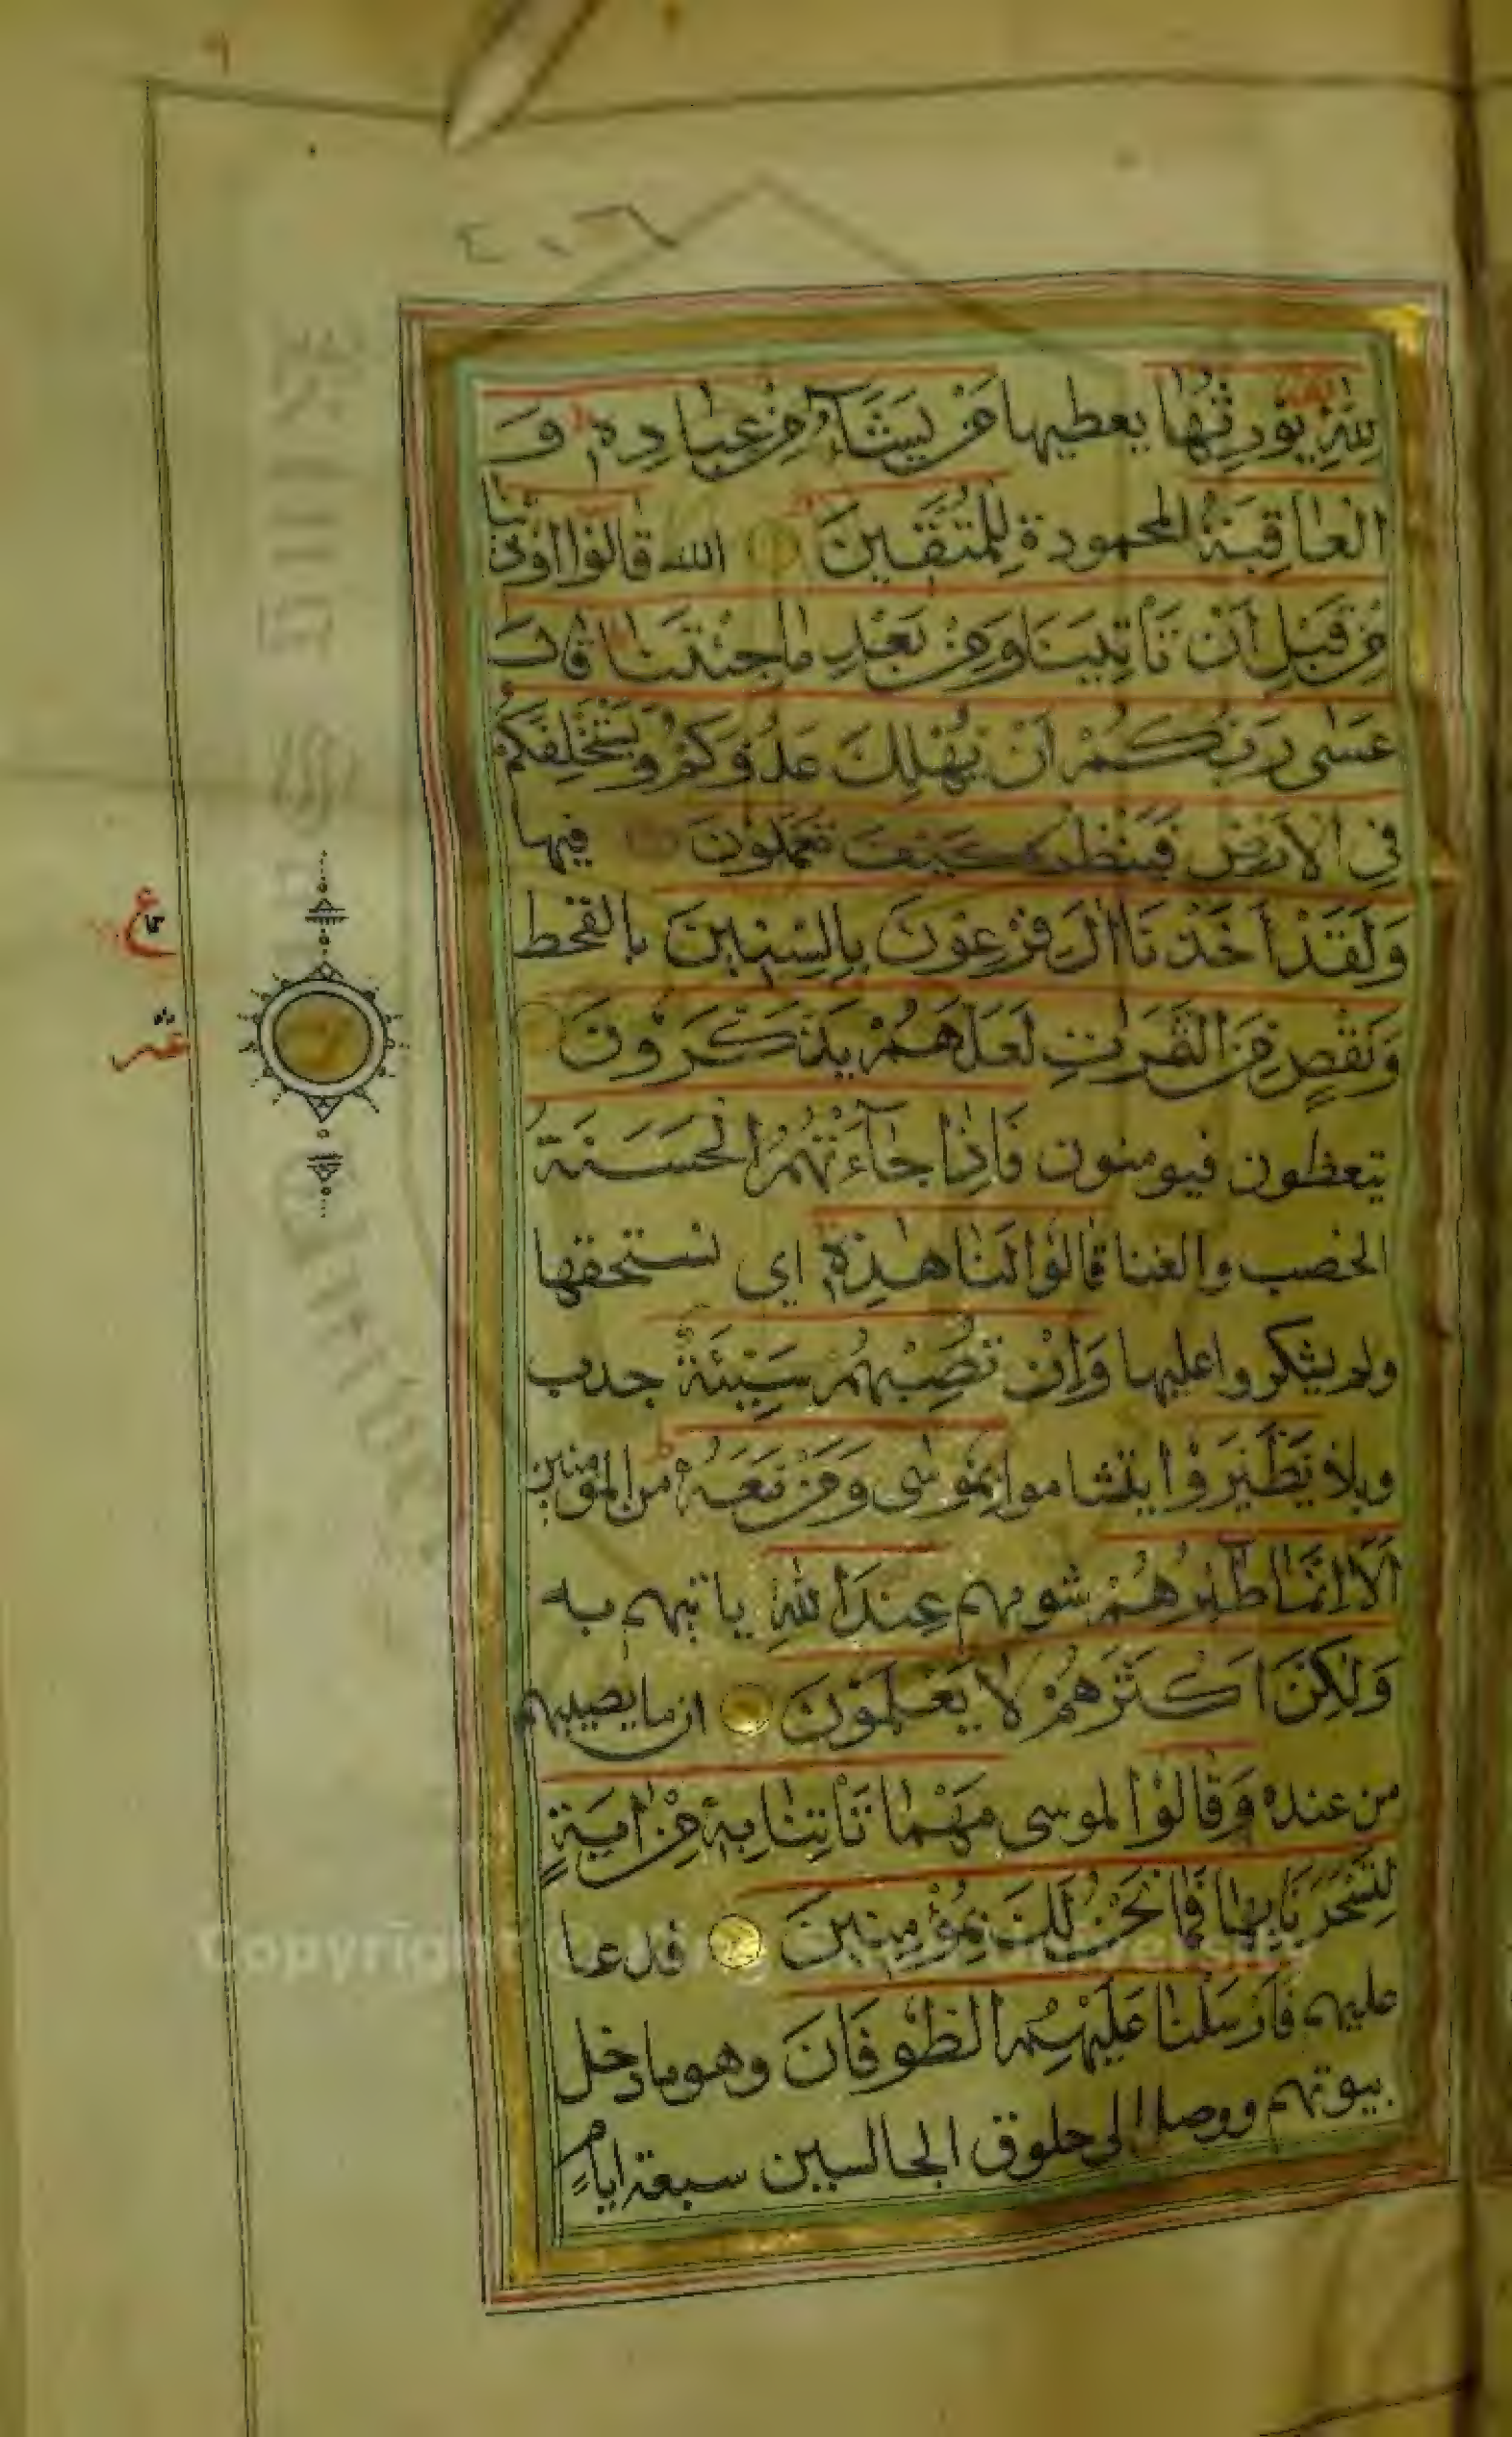 ٤٠٦
لِلّٰهِ يُوْرِثُهَا يعطيها مَنْ يَّشَآءُ مِنْ عِبَادِهٖ وَ
الْعَاقِبَةُ المحمودة لِلْمُتَّقِيْنَ الله قَالُوْا اُوْذِيْنَا
مِنْ قَبْلِ اَنْ تَاْتِيَنَا وَمِنْ بَعْدِ مَا جِئْتَنَا قَالَ
عَسٰى رَبُّكُمْ اَنْ يُّهْلِكَ عَدُوَّكُمْ وَيَسْتَخْلِفَكُمْ
فِى الْاَرْضِ فَيَنْظُرَ كَيْفَ تَعْمَلُوْنَ فيها
وَلَقَدْ اَخَذْنَا اٰلَ فِرْعَوْنَ بِالسِّنِيْنَ بالقحط
وَنَقْصٍ مِّنَ الثَّمَرٰتِ لَعَلَّهُمْ يَذَّكَّرُوْنَ
يتعظون فيومنون فَاِذَا جَآءَتْهُمُ الْحَسَنَةُ
الخصب والغنا قَالُوْا لَنَا هٰذِهٖ اي نستحقها
ولم يشكروا عليها وَاِنْ تُصِبْهُمْ سَيِّئَةٌ جدب
وبلاء يَطَّيَّرُوْا يتشاموا بِمُوْسٰى وَمَنْ مَّعَهٗ من المؤمنين
اَلَا اِنَّمَا طٰٓئِرُهُمْ شومهم عِنْدَ اللّٰهِ ياتيهم به
وَلٰكِنَّ اَكْثَرَهُمْ لَا يَعْلَمُوْنَ ان ما يصيبهم
من عنده وَقَالُوْا لموسى مَهْمَا تَاْتِنَا بِهٖ مِنْ اٰيَةٍ
لِّتَسْحَرَنَا بِهَا فَمَا نَحْنُ لَكَ بِمُؤْمِنِيْنَ فدعا
عليهم فَاَرْسَلْنَا عَلَيْهِمُ الطُّوْفَانَ وهو ما دخل
بيوتهم ووصل الى حلوق الجالسين سبعة ايام
ع
عشر
Copyright